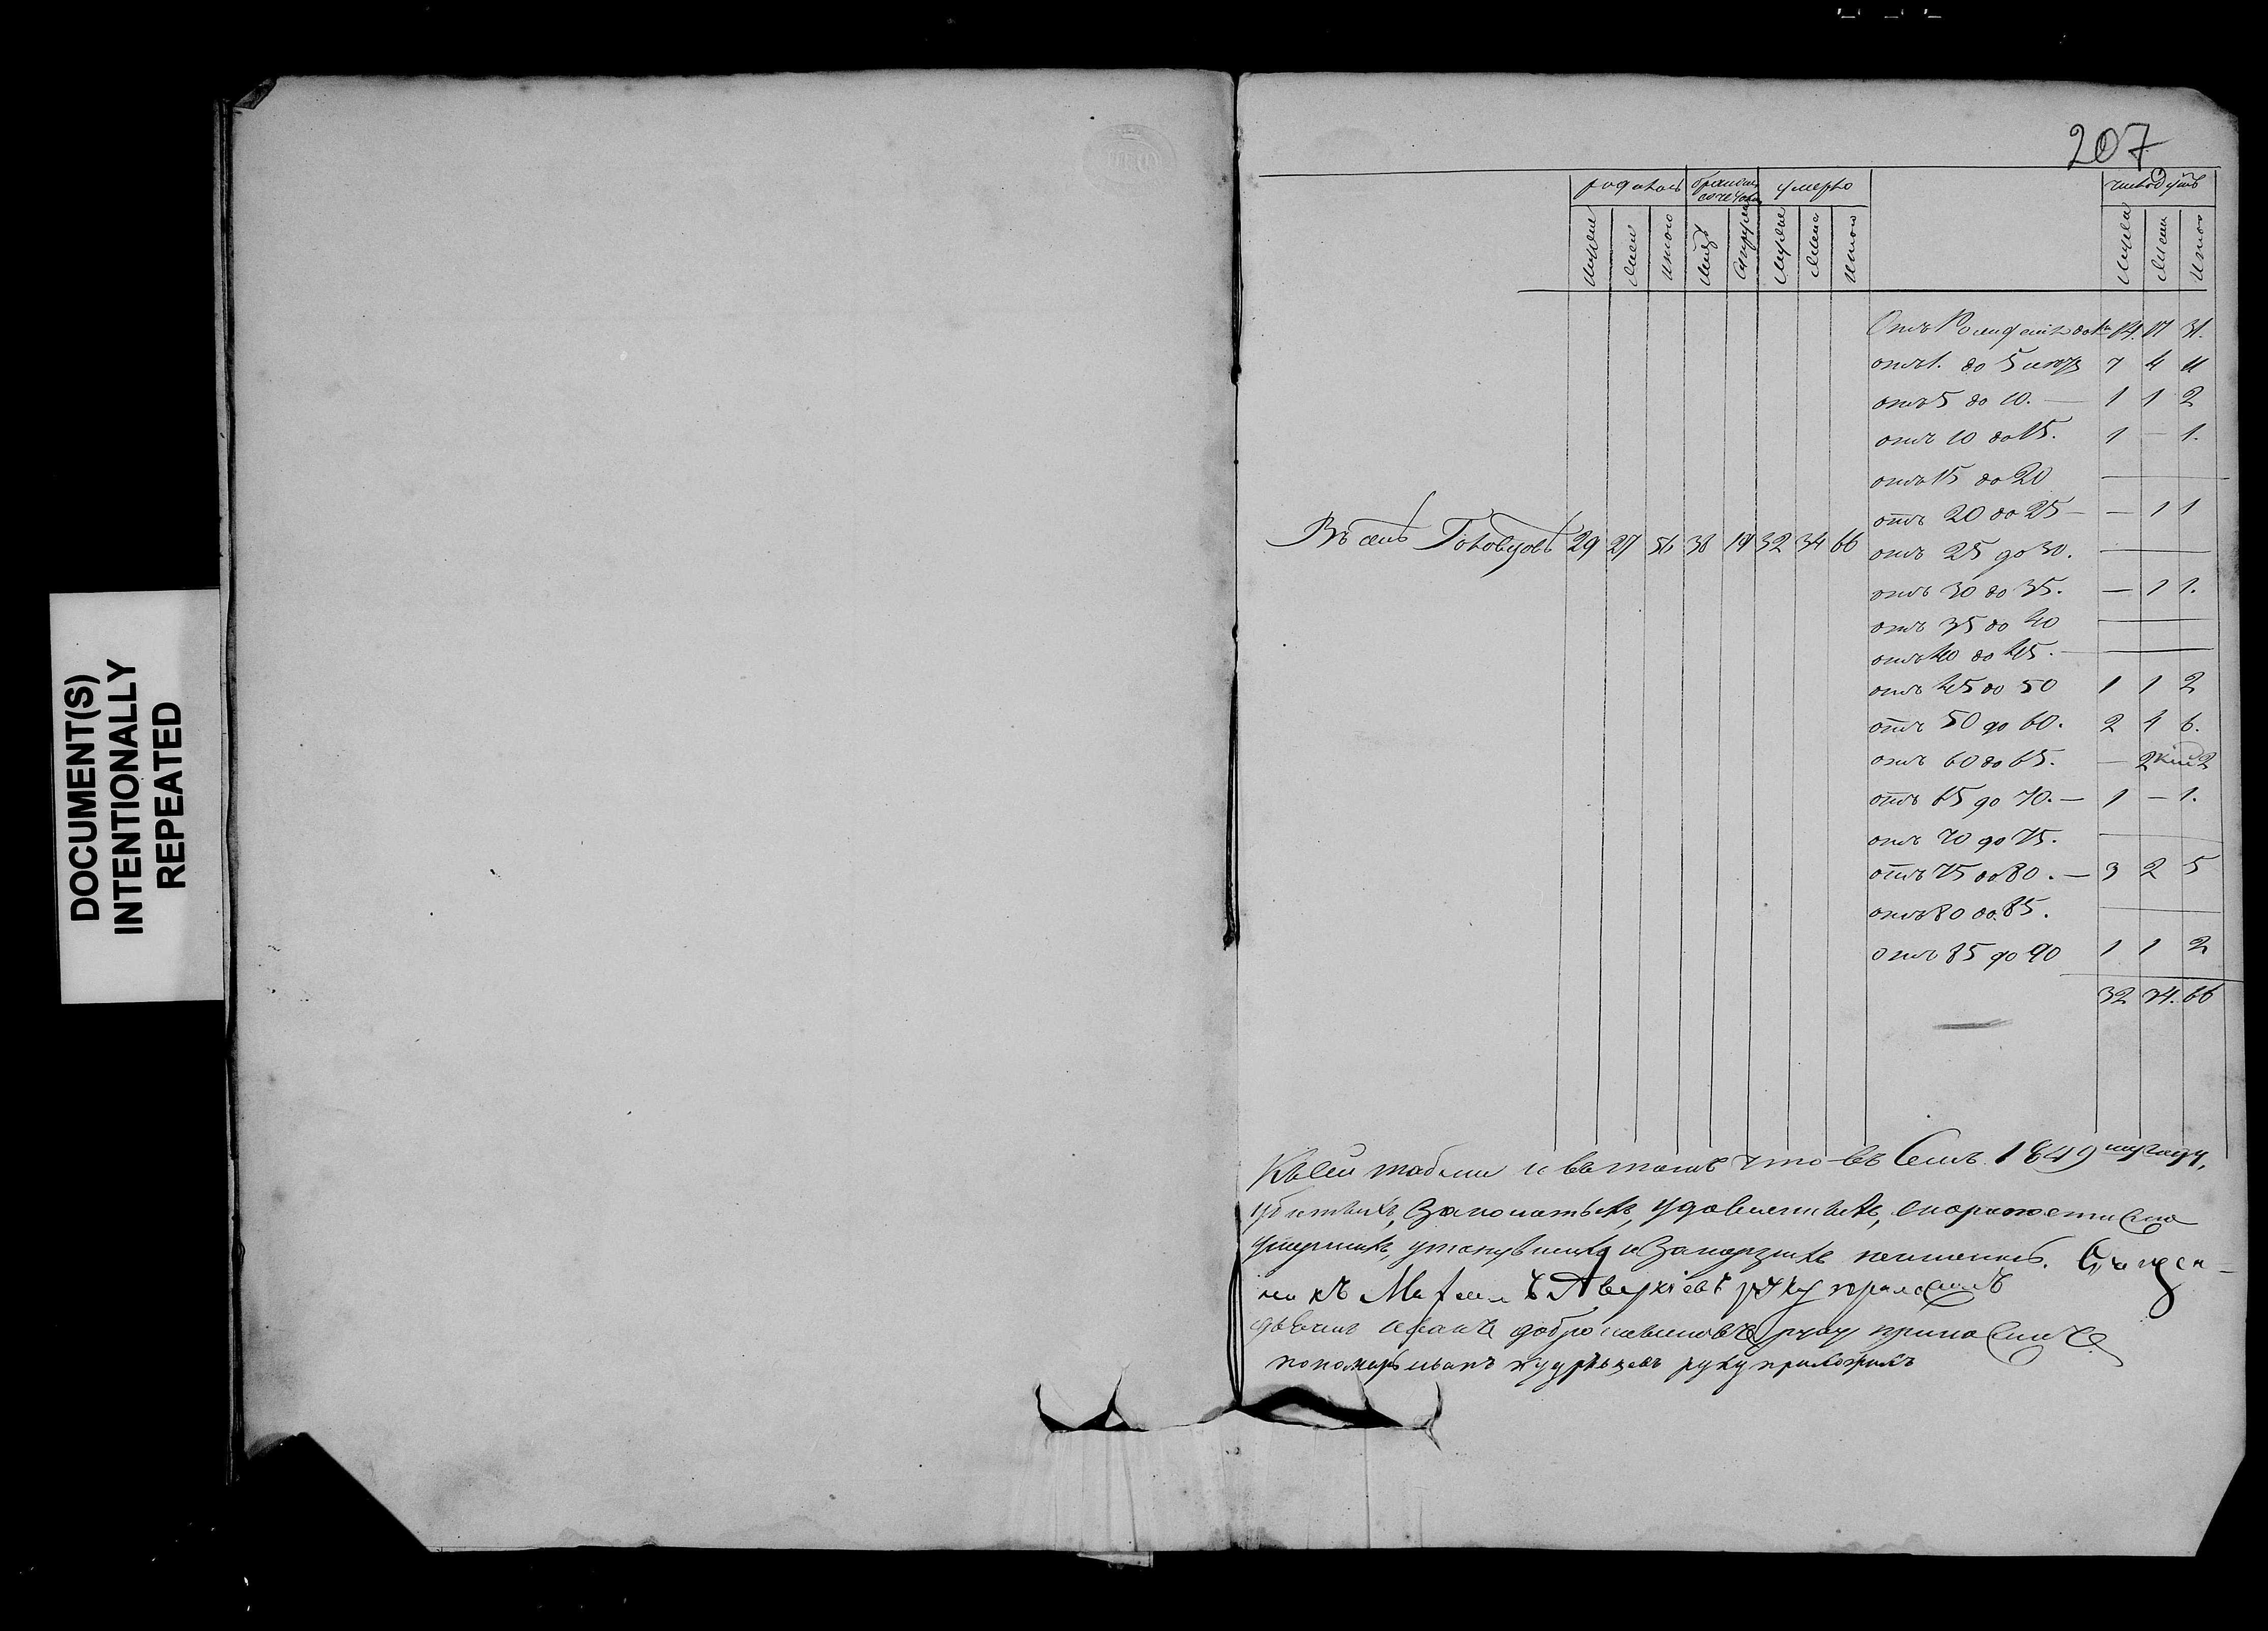 DOCUMENT(S)
INTENTIONALLY
REPEATED
207
родилось бракомъ сочеталось умерло число душъ
мужеска женска итого лицъ супружествъ мужеска женска итого мужеска женска итого
Отъ рожденія до 1 14. 17 31.
отъ 1. до 5 7 4 11
отъ 5 до 10. — 1 1 2
отъ 10 до 15. 1 — 1.
отъ 15 до 20 —
отъ 20 до 25 — — 1 1
Въ селѣ 29 27 56 38 19 32 34 66
отъ 25 до 30. —
отъ 30 до 35. — 1 1.
отъ 35 до 40 —
отъ 40 до 45. —
отъ 45 до 50 1 1 2
отъ 50 до 60. 2 4 6.
отъ 60 до 65. — 2 2
отъ 65 до 70. — 1 — 1.
отъ 70 до 75. —
отъ 75 до 80. — 3 2 5
отъ 80 до 85. —
отъ 85 до 90 1 1 2
32 34. 66
что въ семъ 1849 году,
убитыхъ, удавленныхъ, скоропостижно
умершихъ, утонувшихъ и замерзшихъ Священ-
никъ Аверкіевъ руку приложилъ
руку приложилъ
пономарь иванъ кудрявцевъ руку приложилъ